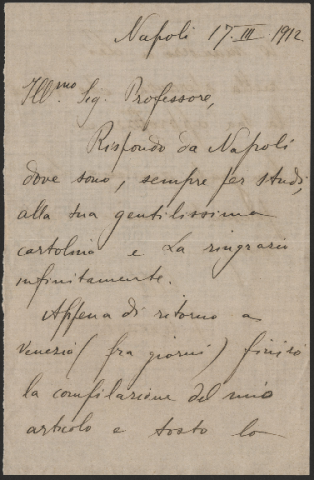 Napoli 17.III 1912.
Ill.mo Sig. Professore,
Rispondo da Napoli
dove sono, sempre per studi,
alla sua gentilissima
cartolina e La ringrazio
infinitamente.
Appena di ritorno a
Venezia (fra giorni) finirò
la compilazione del mio
articolo e tosto lo